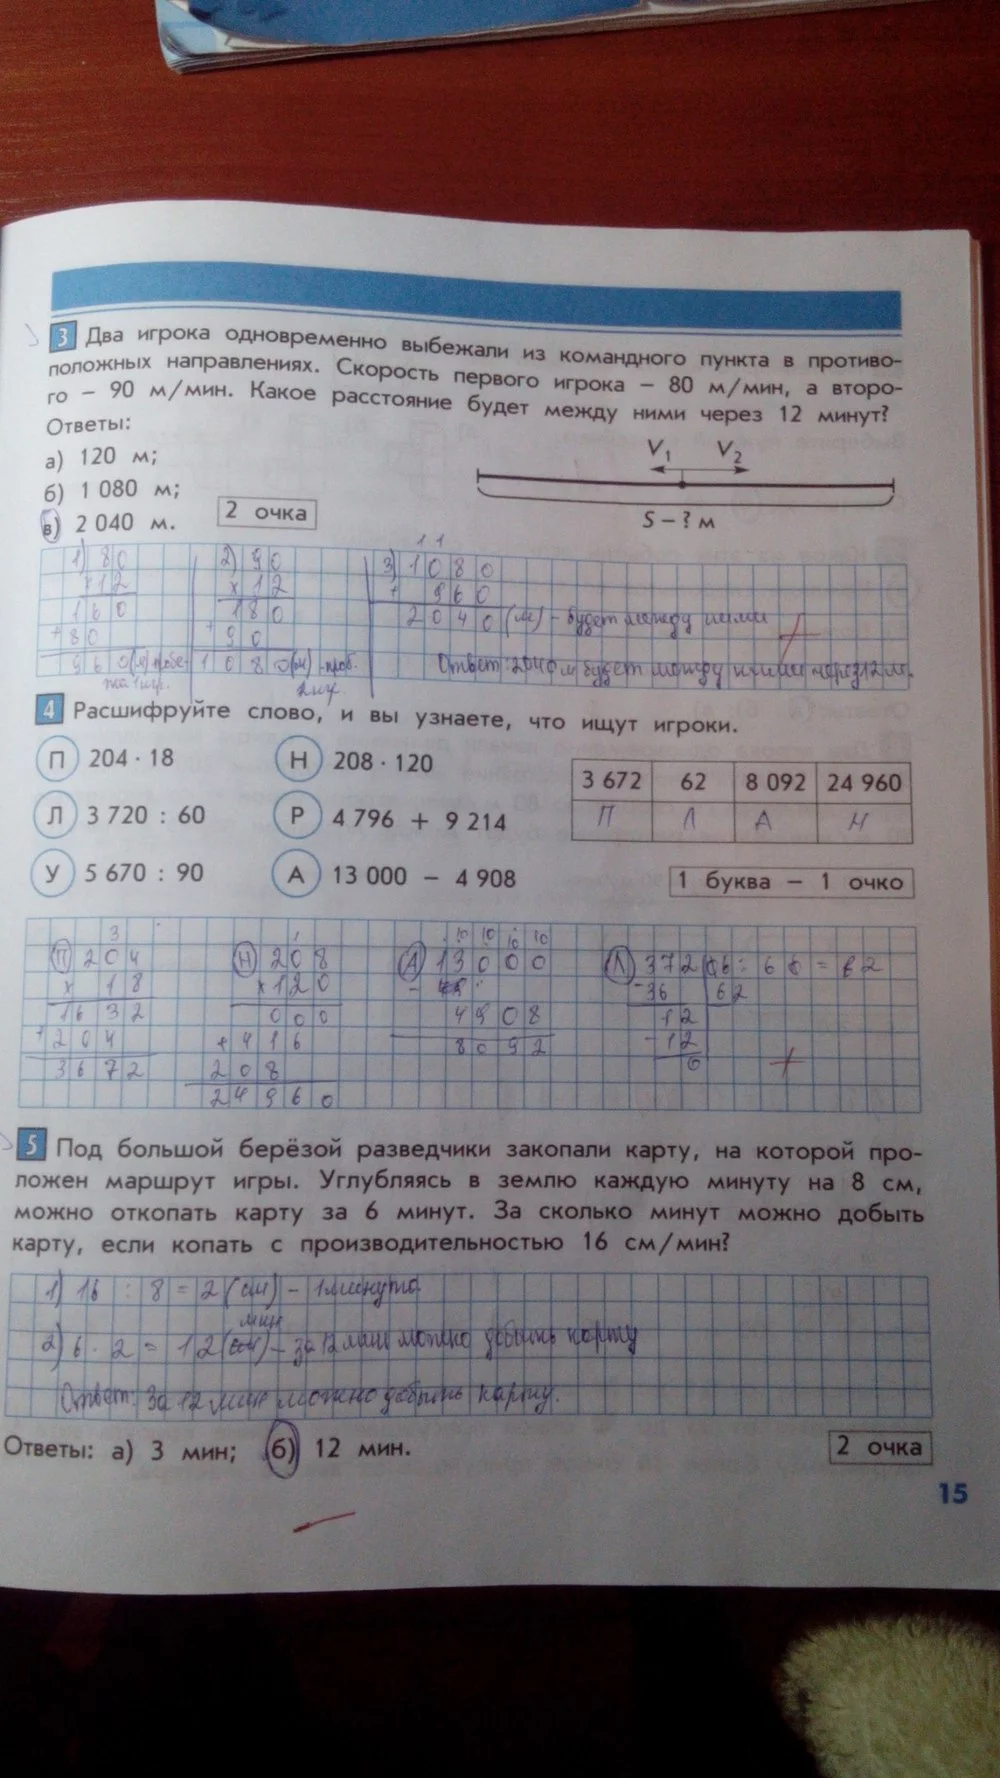 3 Два игрока одновременно выбежали из командного пункта в противо-
положных направлениях. Скорость первого игрока – 80 м/мин, а второ-
го – 90 м/мин. Какое расстояние будет между ними через 12 минут?
Ответы:
а) 120 м;
б) 1 080 м;
в) 2 040 м.
2 очка
V1 V2
S – ? м
1) 80
× 12
160
+ 80
960 (м)
2) 90
× 12
180
+ 90
1080 (м) - проб.
1 1
3) 1080
+ 960
2040 (м) - будет между ними
Ответ: 2040 м будет между ними через 12 м.
4 Расшифруйте слово, и вы узнаете, что ищут игроки.
П 204 · 18
Н 208 · 120
Л 3 720 : 60
Р 4 796 + 9 214
У 5 670 : 90
А 13 000 – 4 908
3 672 62 8 092 24 960
П Л А Н
1 буква – 1 очко
3
П 204
× 18
1632
+ 204
3672
1
Н 208
× 120
000
+ 416
208
24960
10 10 10 10
А 13000
-
4908
8092
Л 372
- 36 62
12
- 12
0
: 60 = 62
5 Под большой берёзой разведчики закопали карту, на которой про-
ложен маршрут игры. Углубляясь в землю каждую минуту на 8 см,
можно откопать карту за 6 минут. За сколько минут можно добыть
карту, если копать с производительностью 16 см/мин?
1) 16 : 8 = 2 (см) - 1 минуту.
мин
2) 6 · 2 = 12 - за 12 мин можно добыть карту
Ответ: за 12 мин можно добыть карту.
Ответы: а) 3 мин; б) 12 мин.
2 очка
15